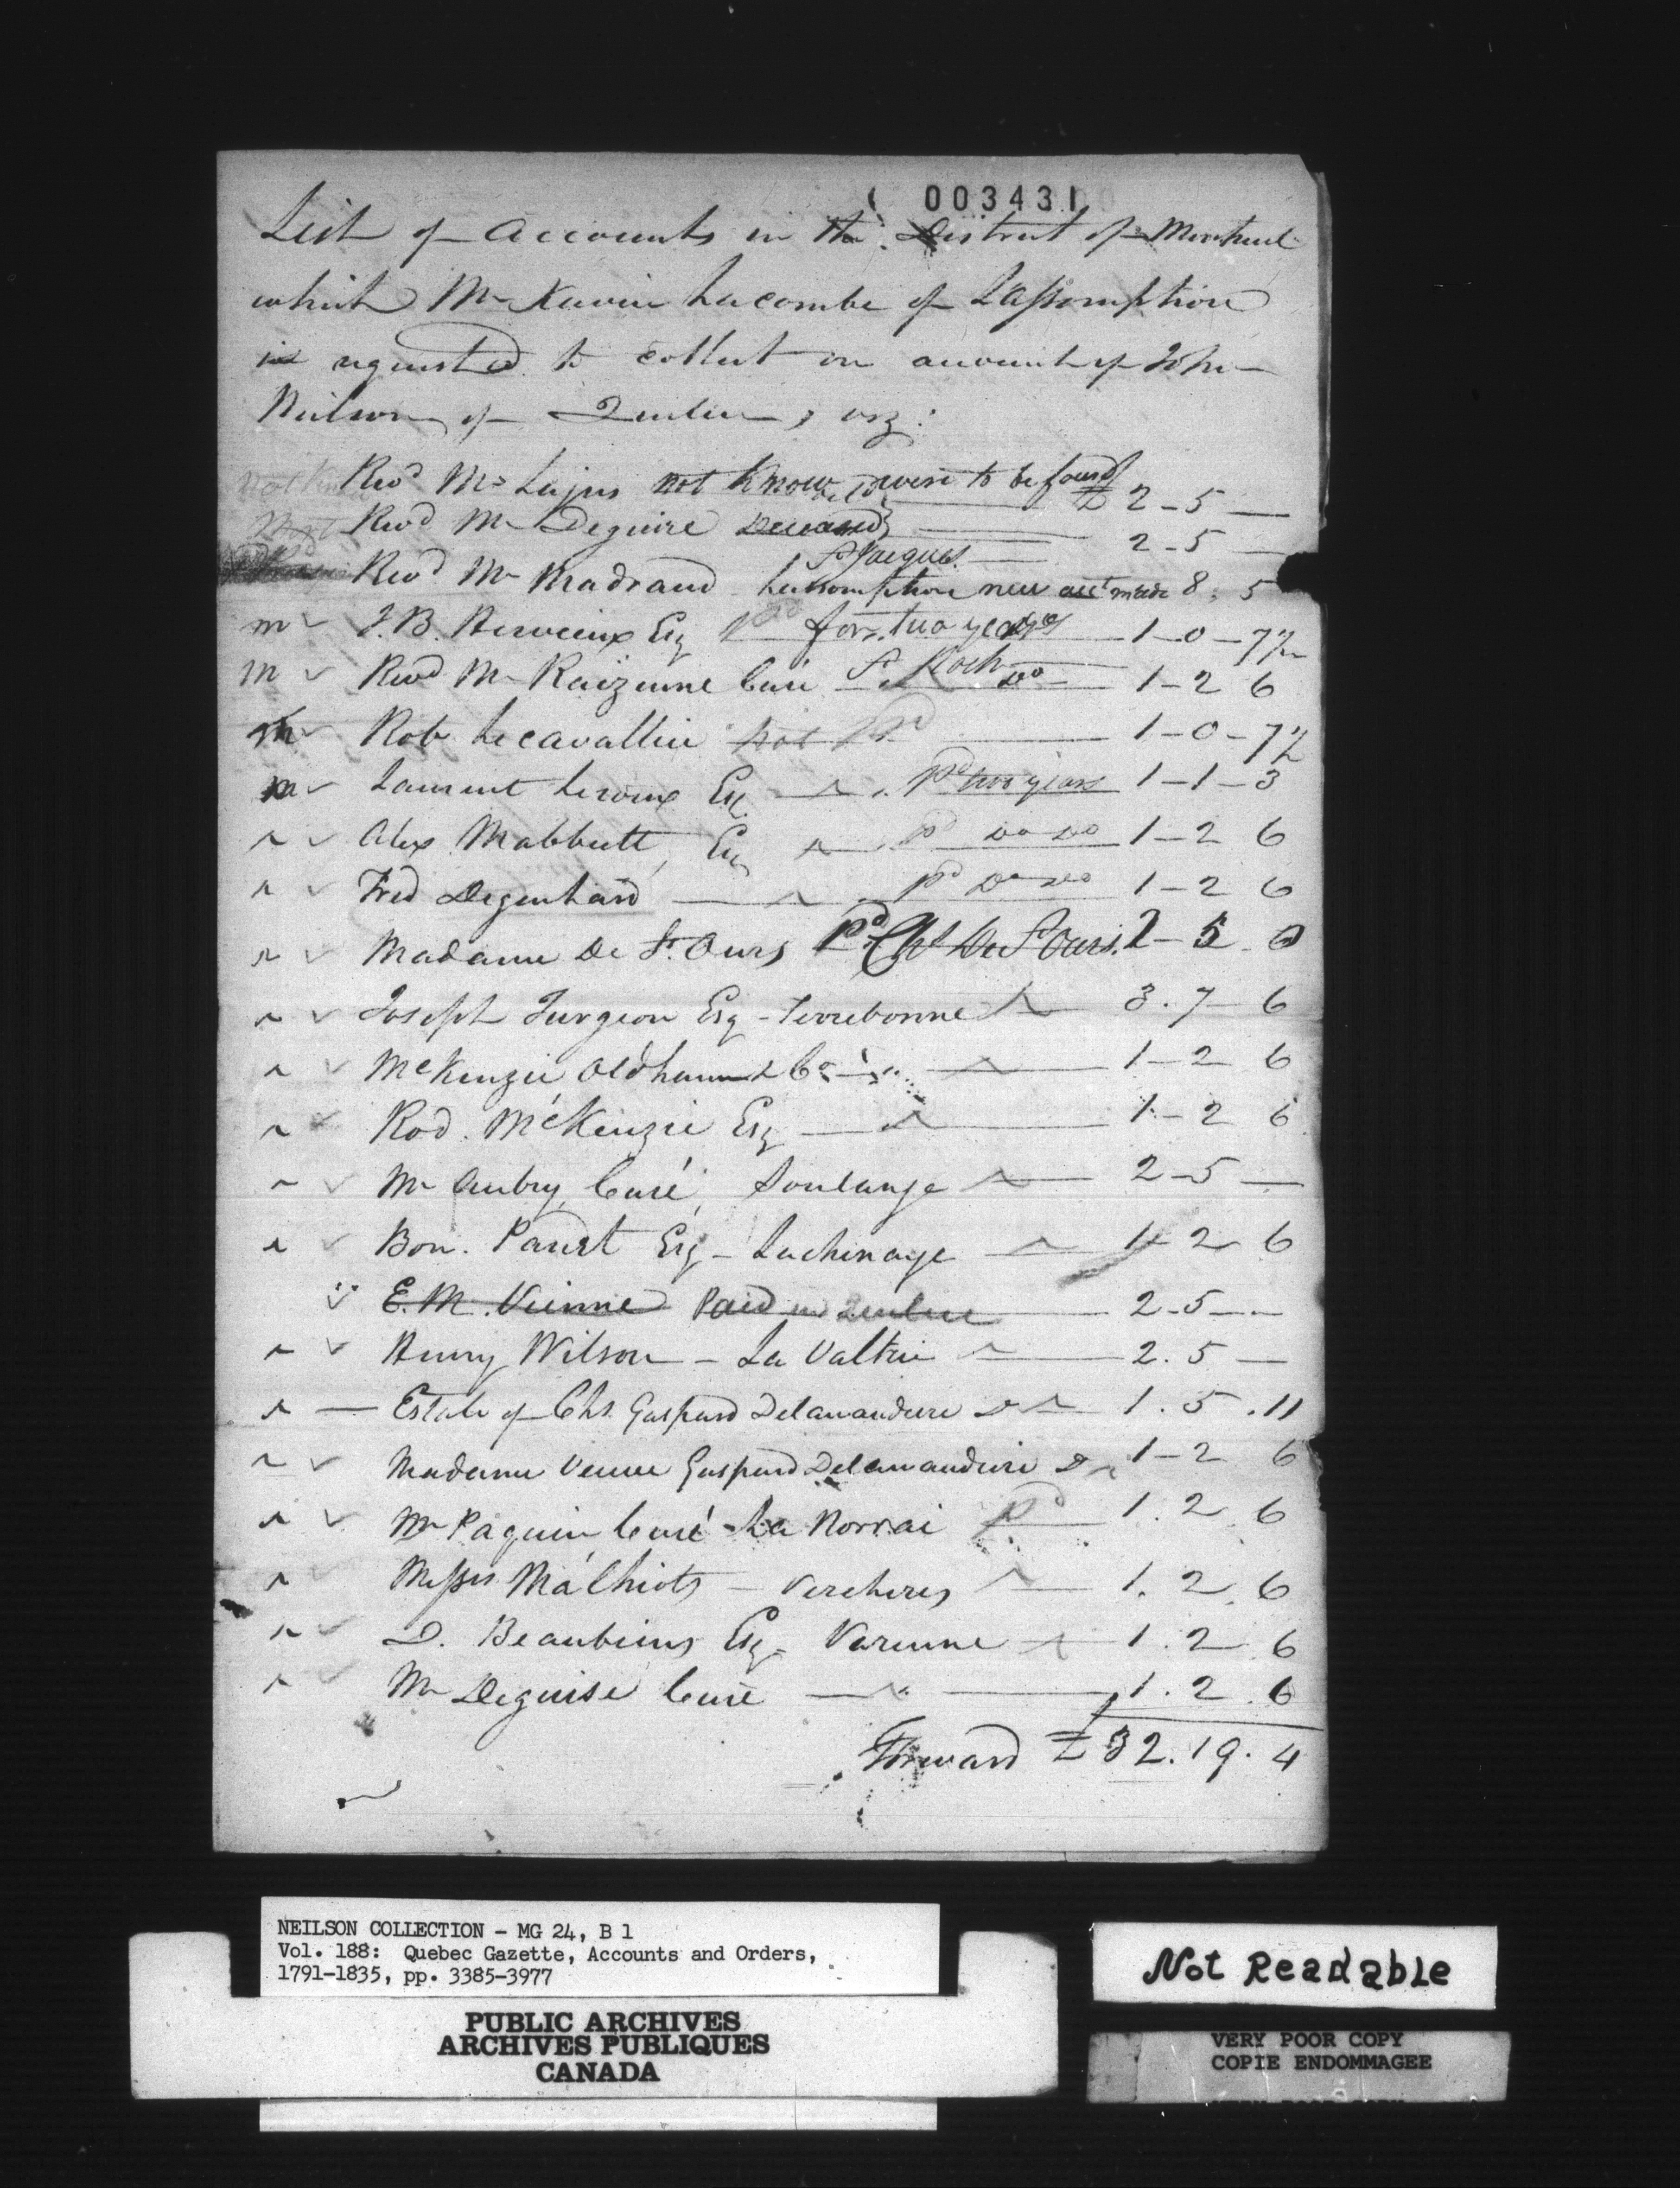 003431
List of Accounts in the District of Montreal
which Mr Xavier Lacombe of L'assomption
is requested to collect on account of John
Neilson of Quebec, viz:
Revd Mr Lajus not Know were to be found £ 2-5-
Revd Mr Deguire Deceased 2-5-
St Jacques
Revd Mr Madrand Lassomption new acct made 8.5
m J.B. Hervieux Esq Pd for two years 1-0-7½
m Revd Mr Raizenne Curé St Roch Do 1-2 6
m Rob Lecavallier not Pd 1-0-7½
m Laurent Leroux Esq Pd two years 1-1-3
Alex Mabbutt, Esq Pd Do Do 1-2 6
Fred Degenhard Pd Do Do 1-2 6
Madame De St. Ours Pd Chs De St Ours. 2-5 0
Joseph Turgeon Esq - Terrebonne 3.7-6
McKenzie Oldham & Co 1-2 6
Rod. McKenzie Esq 1-2 6
Mr Aubry, Curé, Soulange 2-5-
Bon. Panet Esq - Lachenaye 1-2 6
E.M. Vienne Paid in Quebec 2-5-
Henry Wilson - La Valtrie 2.5-
Estate of Chs Gaspard Delanaudiere Do 1.5.11
Madame Veuve Gaspard Delanaudiere Do 1-2 6
Mr Paquin Curé La Norrai Pd 1.2 6
Messrs Malhiots - Vercheres 1.2.6
D. Beaubiens Esq - Varenne 1.2 6
Mr Deguise Curé 1.2.6
Forward £32.19.4
NEILSON COLLECTION - MG 24, B 1
Vol. 188: Quebec Gazette, Accounts and Orders,
1791-1835, pp. 3385-3977
PUBLIC ARCHIVES
ARCHIVES PUBLIQUES
CANADA
Not Readable
VERY POOR COPY
COPIE ENDOMMAGEE